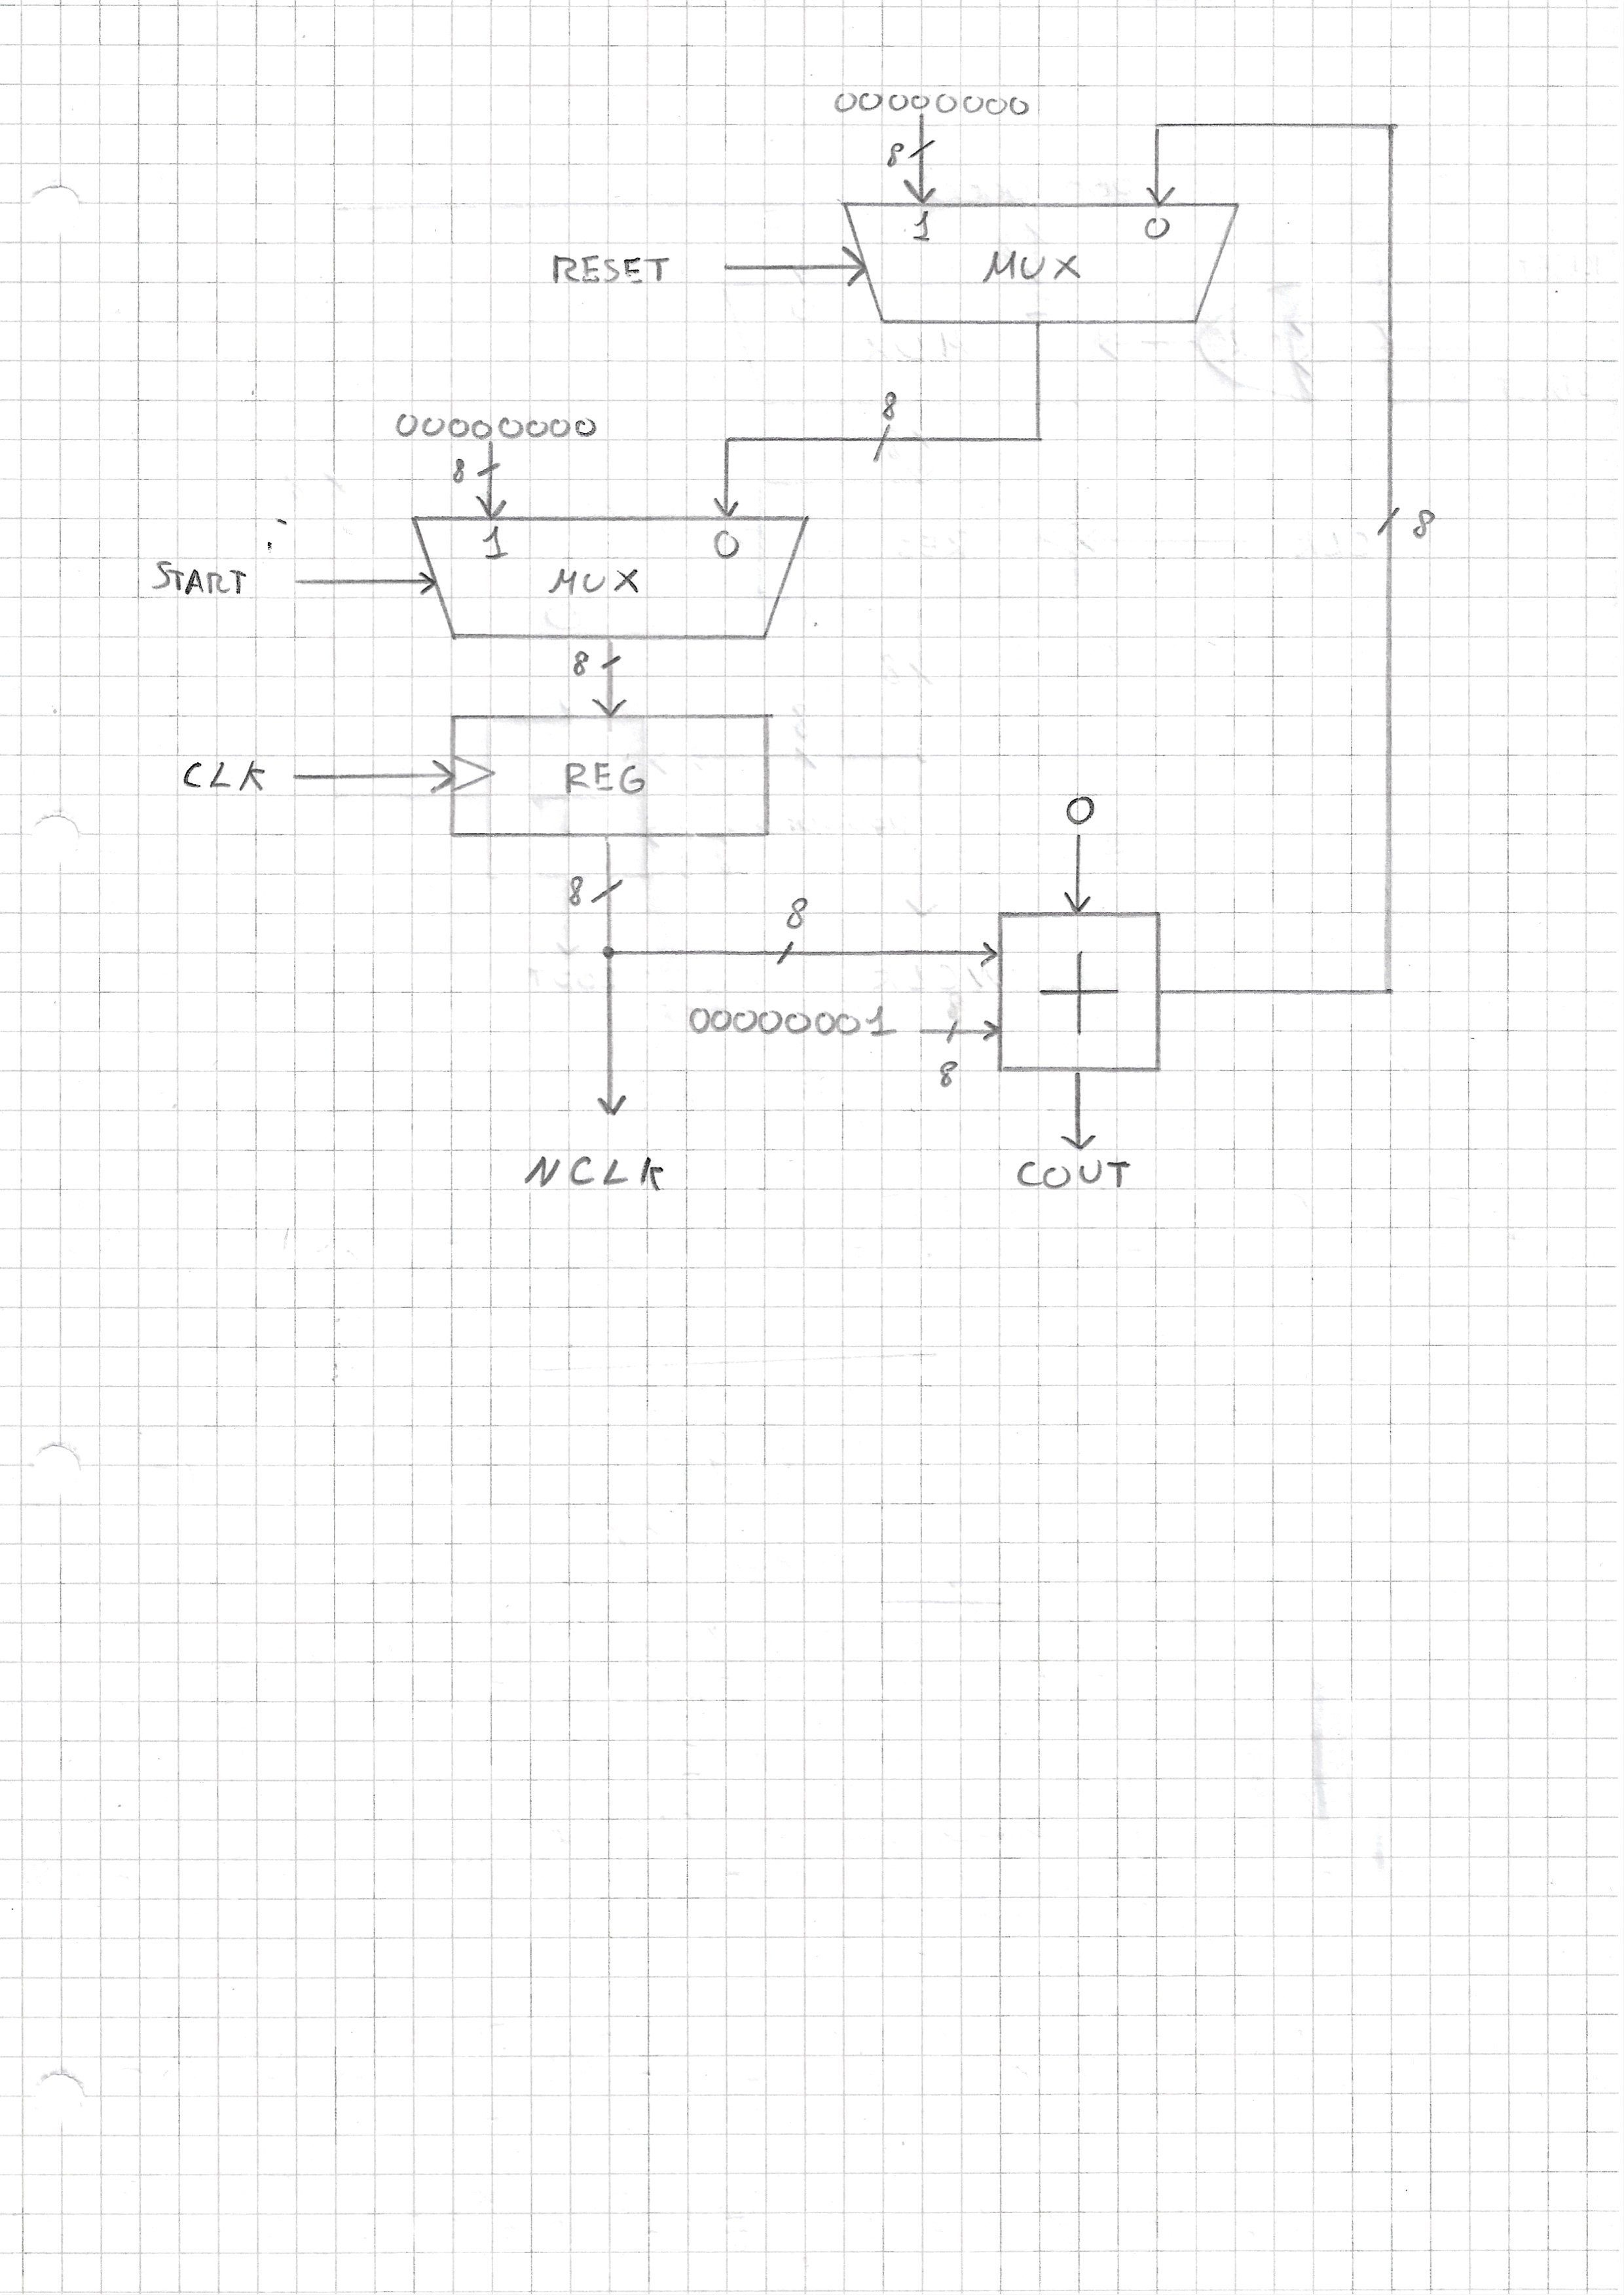 00000000
8
1 0
RESET MUX
8
00000000
8
1 0
8
START MUX
8
CLK REG
0
8
8
00000001
8
NCLK COUT